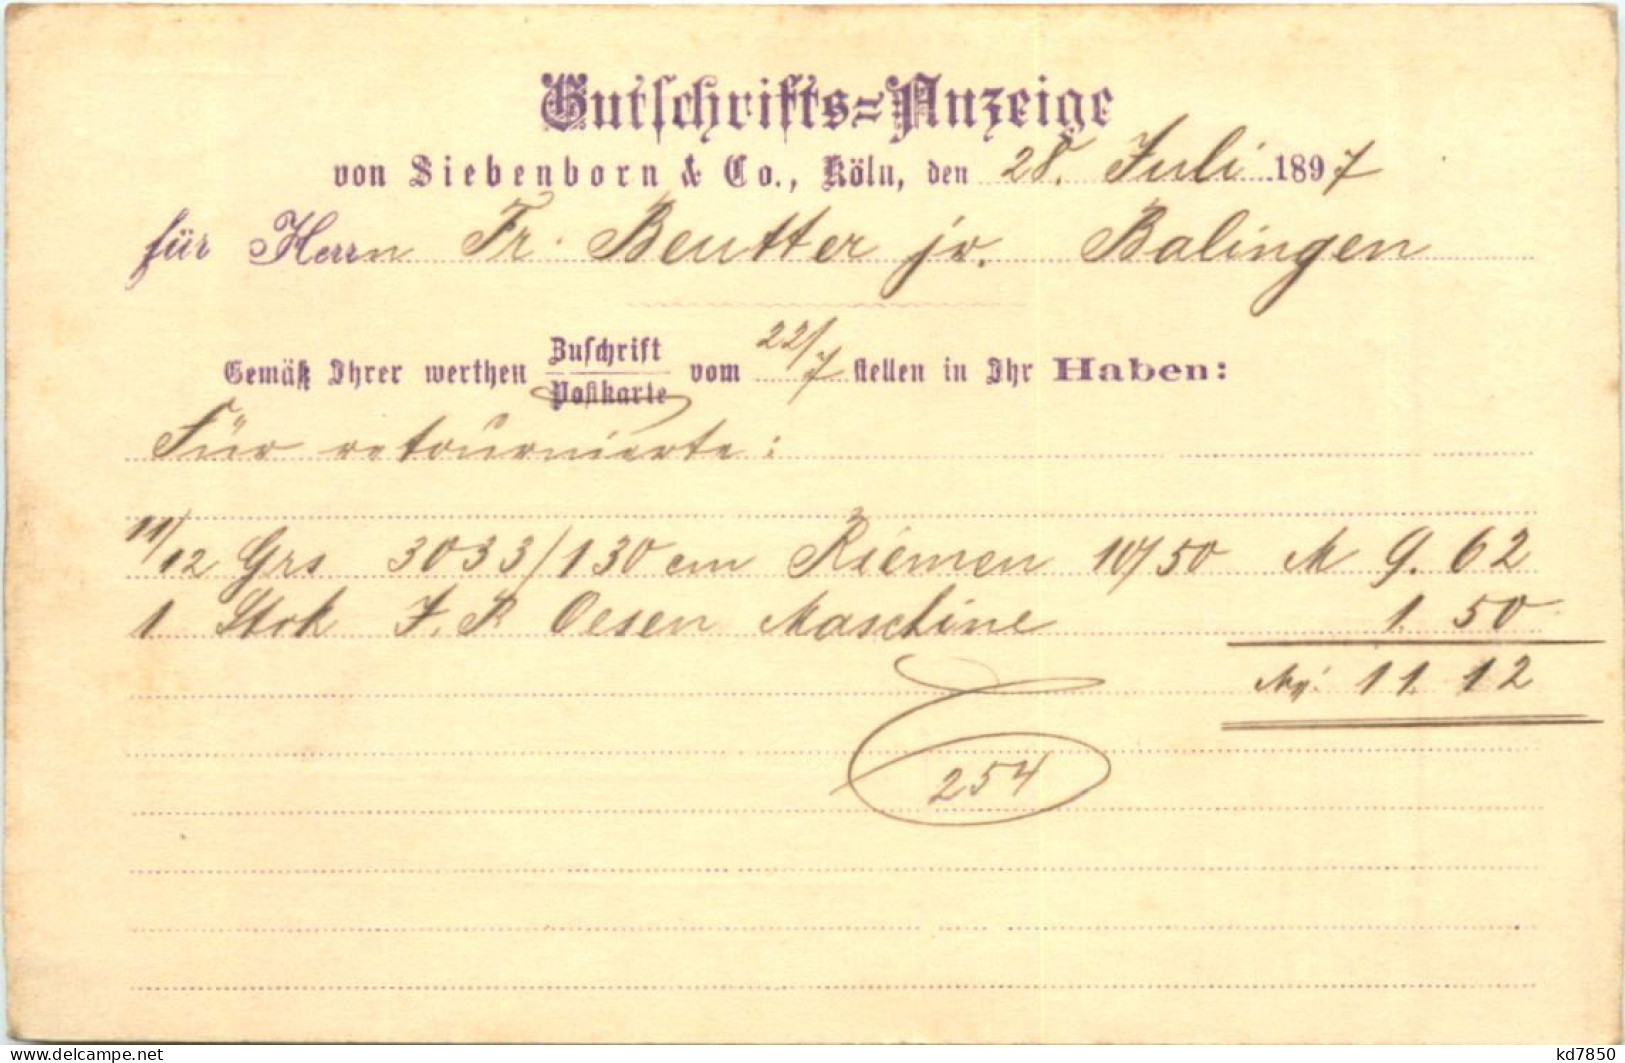 Gutschrifts=Anzeige
von Siebenborn & Co., Köln, den 28. Juli 1897
für Herrn Fr. Beutter jr. Balingen
Gemäß Ihrer werthen Zuschrift Postkarte vom 22/7 stellen in Ihr Haben:
Für retournierte:
11/12 Grs 3033/130 cm Riemen 10/50 M 9.62
1 Stck Oesen Maschine 1.50
11.12
254
delcampe.net
kd7850